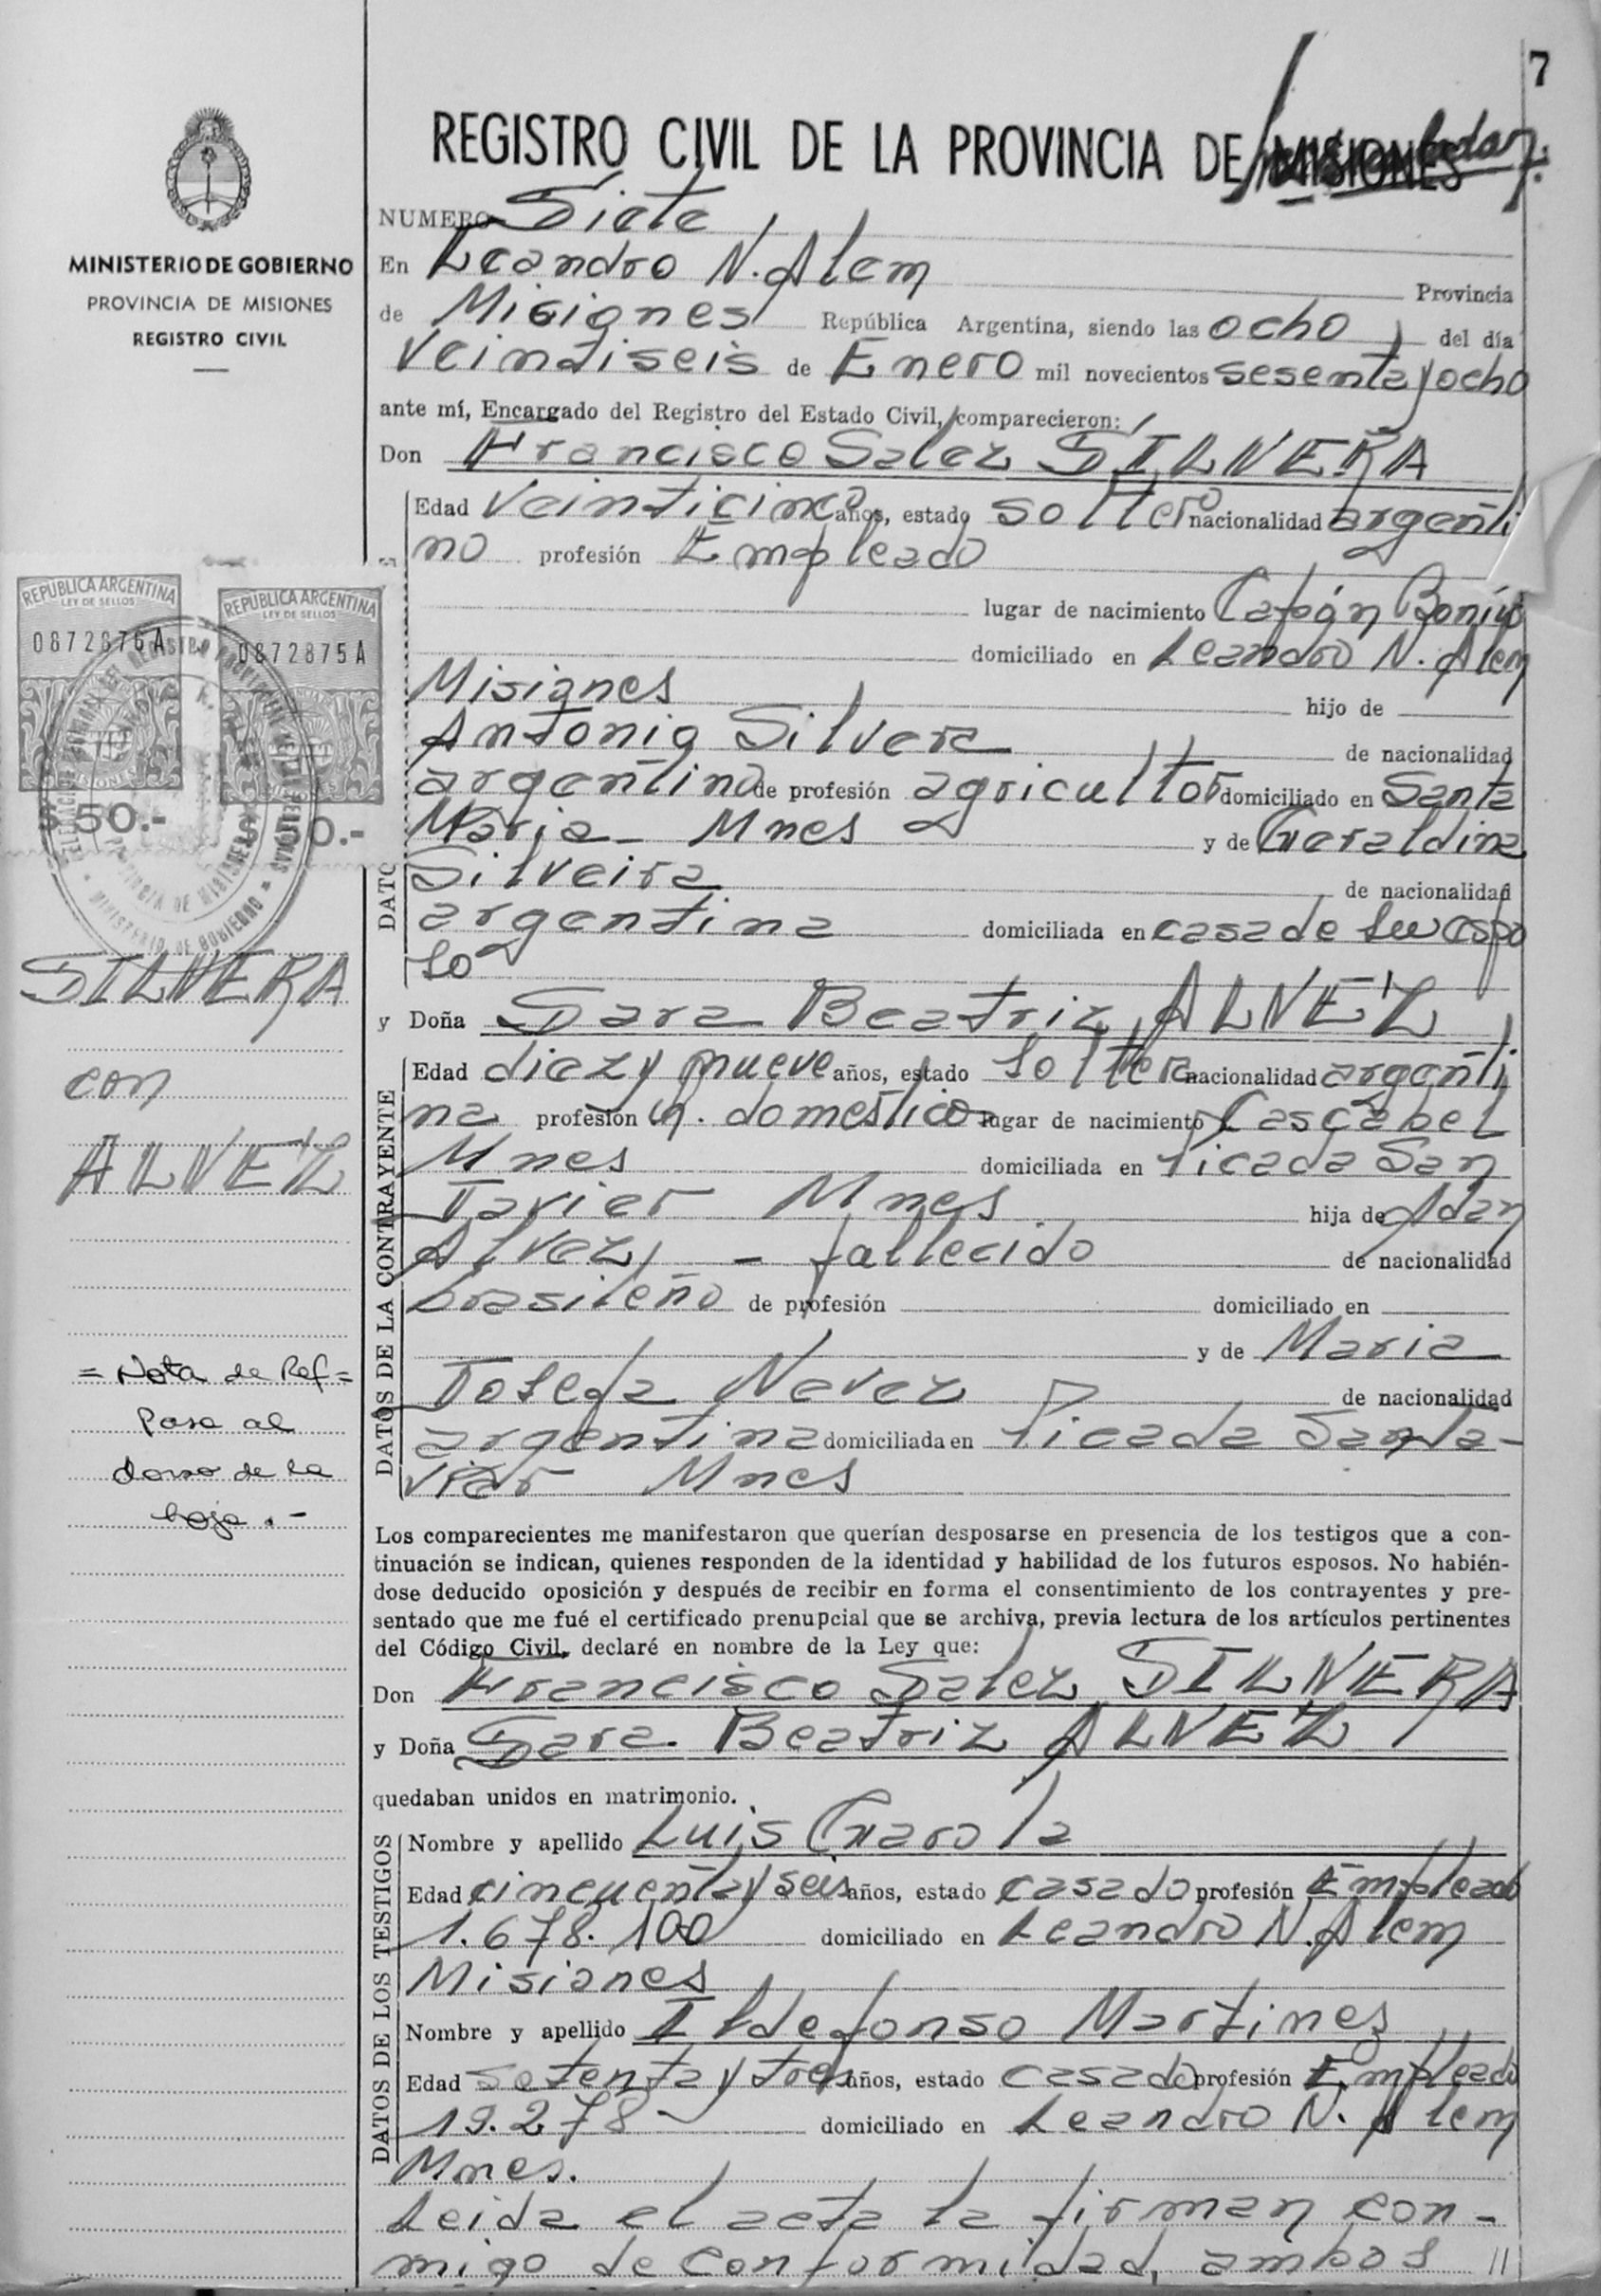 7
REGISTRO CIVIL DE LA PROVINCIA DE MISIONES
MINISTERIO DE GOBIERNO
PROVINCIA DE MISIONES
REGISTRO CIVIL
NUMERO Siete
En Leandro N. Alem Provincia
de Misiones República Argentina, siendo las ocho del día
Veintiseis de Enero mil novecientos sesenta y ocho
ante mí, Encargado del Registro del Estado Civil, comparecieron:
Don Francisco Salez SILVERA
Edad Veinticinco años, estado soltero nacionalidad argenti
no profesión Empleado
lugar de nacimiento Capón Bonito
domiciliado en Leandro N. Alem
Misiones hijo de
Antonio Silvera de nacionalidad
argentino de profesión agricultor domiciliado en Santa
Maria - Mnes y de Geraldina
Silveira de nacionalidad
argentina domiciliada en casa de su espo
so
REPUBLICA ARGENTINA
LEY DE SELLOS
0872876A
$ 50.-
REPUBLICA ARGENTINA
LEY DE SELLOS
0872875A
0.-
MINISTERIO DE GOBIERNO
DATO
SILVERA
con
ALVEZ
y Doña Sara Beatriz ALVEZ
DATOS DE LA CONTRAYENTE
Edad diez y nueve años, estado soltera nacionalidad argenti
na profesión q. domestico lugar de nacimiento Cascabel
Mnes domiciliada en Picada San
Javier Mnes hija de Adan
Alvez - fallecido de nacionalidad
brasileño de profesión domiciliado en
y de Maria
Josefa Nevez de nacionalidad
argentina domiciliada en Picada San Ja-
vier Mnes
= Nota de Ref =
Pasa al
dorso de la
hoja . -
Los comparecientes me manifestaron que querían desposarse en presencia de los testigos que a con-
tinuación se indican, quienes responden de la identidad y habilidad de los futuros esposos. No habién-
dose deducido oposición y después de recibir en forma el consentimiento de los contrayentes y pre-
sentado que me fué el certificado prenupcial que se archiva, previa lectura de los artículos pertinentes
del Código Civil, declaré en nombre de la Ley que:
Don Francisco Salez SILVERA
y Doña Sara Beatriz ALVEZ
quedaban unidos en matrimonio.
DATOS DE LOS TESTIGOS
Nombre y apellido Luis Garola
Edad cincuenta y seis años, estado casado profesión Empleado
1.678.100 domiciliado en Leandro N. Alem
Misiones
Nombre y apellido Ildefonso Martines
Edad setenta y tres años, estado casado profesión Empleado
19.278 domiciliado en Leandro N. Alem
Mnes.
Leida el acta la firman con-
migo de conformidad, ambos //